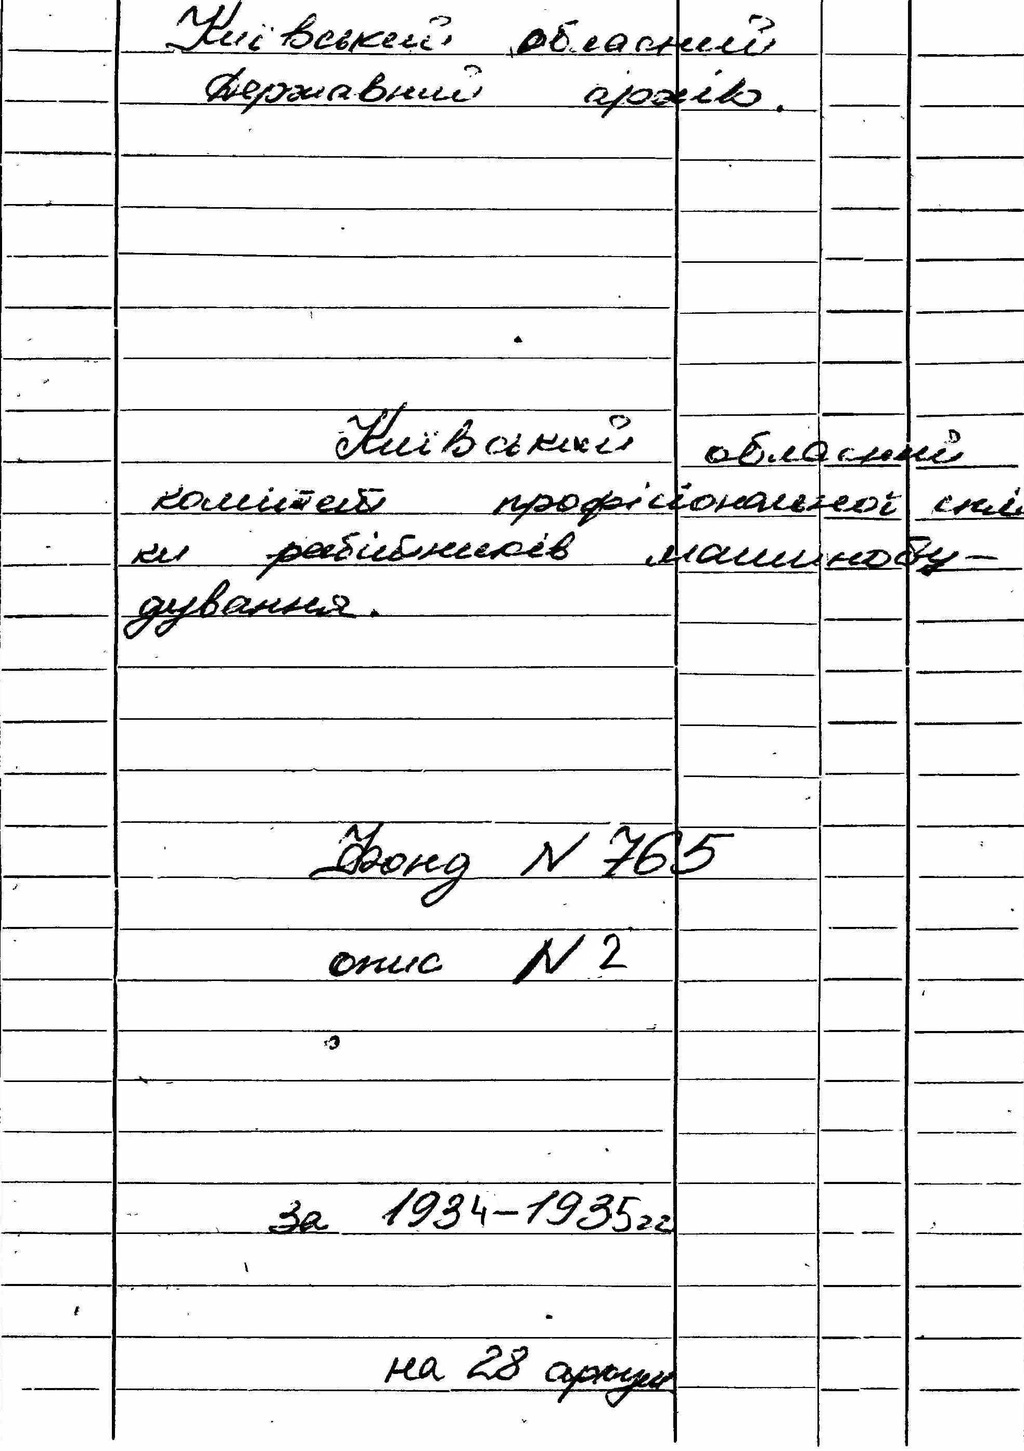 Київський обласний
Державний архів.
Київський обласний
комітет професіональної спіл
ки робітників машинобу-
дування.
Фонд N 765
опис N 2
за 1934-1935гг
на 28 аркуш